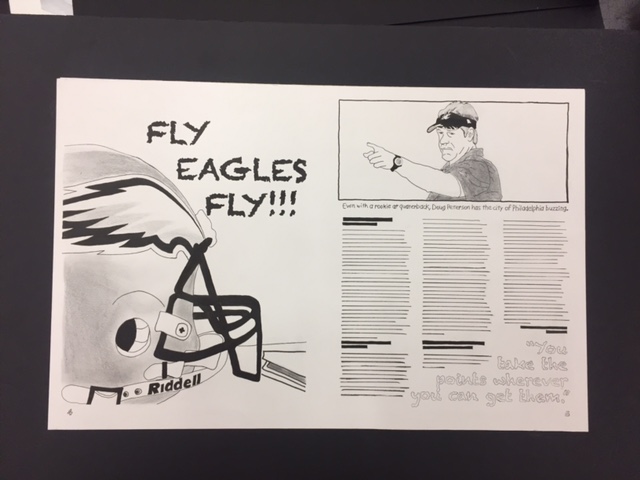 FLY
EAGLES
FLY!!!
Riddell
4
Even with a rookie at quarterback, Doug Pederson has the city of Philadelphia buzzing.
"You
take the
points wherever
you can get them."